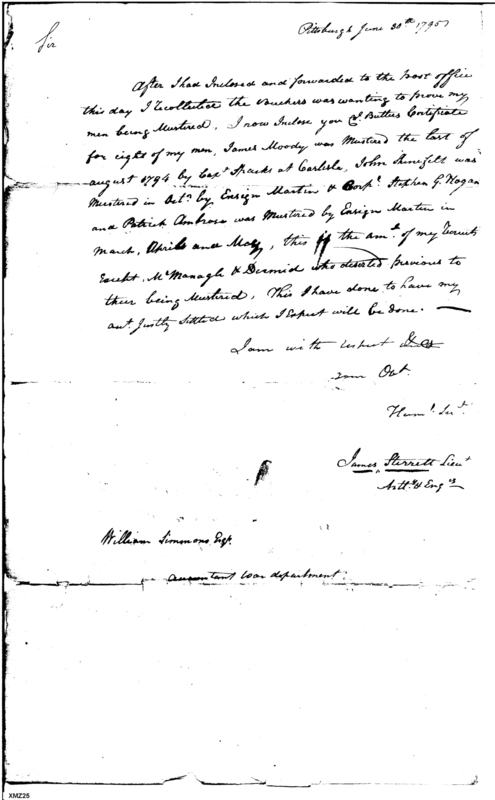 Pittsburgh June 30th 1795
Sir
After I had Inclosed and forwarded to the post office
this day I recollected the Vouchers was wanting to prove my
men being Mustered, I now Inclose you Butlers Certificate
for eight of my men, James Moody was Mustered the last of
august 1794 by Capt Sparks at Carlisle, John was
Mustered in Octr. by Ensign Martin & Corpl. Stephen G. Hogan
and Patrick Ambrose was Mustered by Ensign Martin in
March, April and May, this is the amt. of my recruits
Except, McManagle & Dermid who deserted previous to
their being Mustered, This I have done to have my
act. Justly settled which I Expect will be done. —
I am with respect
Obt.
Huml. Sert.
James Sterrett Lieut
Artly. & Engrs
William Simmons Esqr.
accountant War department.
XMZ25